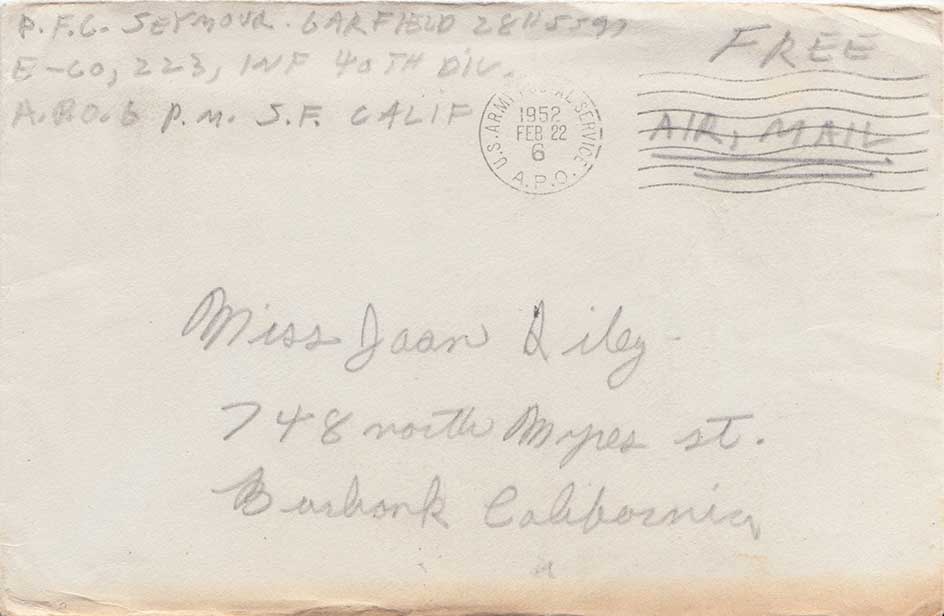 P.F.C. SEYMOUR. GARFIELD
E-CO, 223, INF 40TH DIV.
A.P.O. 6 P.M. S.F. CALIF
FREE
AIR, MAIL
U.S. ARMY POSTAL SERVICE
1952
FEB 22
6
A.P.O.
Miss Joan Riley
748 north Myres st.
Burbank California